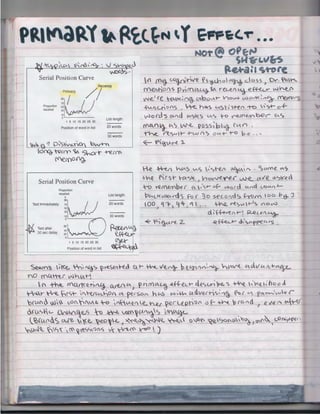 PRIMARY & RECENCY EFFECT...
NOT @ OPEN
SHELVES
Retail store
Typical finding: U shaped
words.
Serial Position Curve
Primary
Recency
Proportion
recalled
List length
20 words
30 words
Position of word in list
long term & short term
memory
In my cognitive Psychology class, Dr. Park
mentions primacy & recency effect when
we're talking about how working memory
functions. He has us listen to list of
words and asks us to remember as
many as we possibly can.
The result turns out to be...
← Figure 1
He then has us listen again. Same as
the first task, however we are asked
to remember a list of word and count
backwards for 30 seconds from 100 by 3
100, 97, 94, 91... the result is now
different! Recency
effect disappears.
← Figure 2
Serial Position Curve
Proportion
recalled
List length
Test immediately
20 words
30 words
Test after
30 sec delay
Recency
effect
get
affected
Position of word in list
Seems like things presented at the very beginning have advantage
no matter what!
In the marketing arena, primacy effect describes the likelihood
that the first interaction a person has with advertising for a particular
brand will continue to influence her perception of the brand, even after
drastic changes to the company's image.
(Brands are like people, they have their own personality, and consumers
have first impressions of them too!)